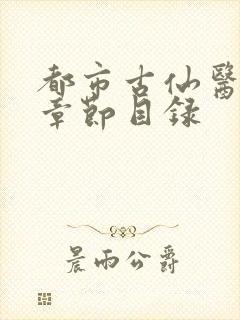 都市古仙醫
章節目録
晨雨公爵